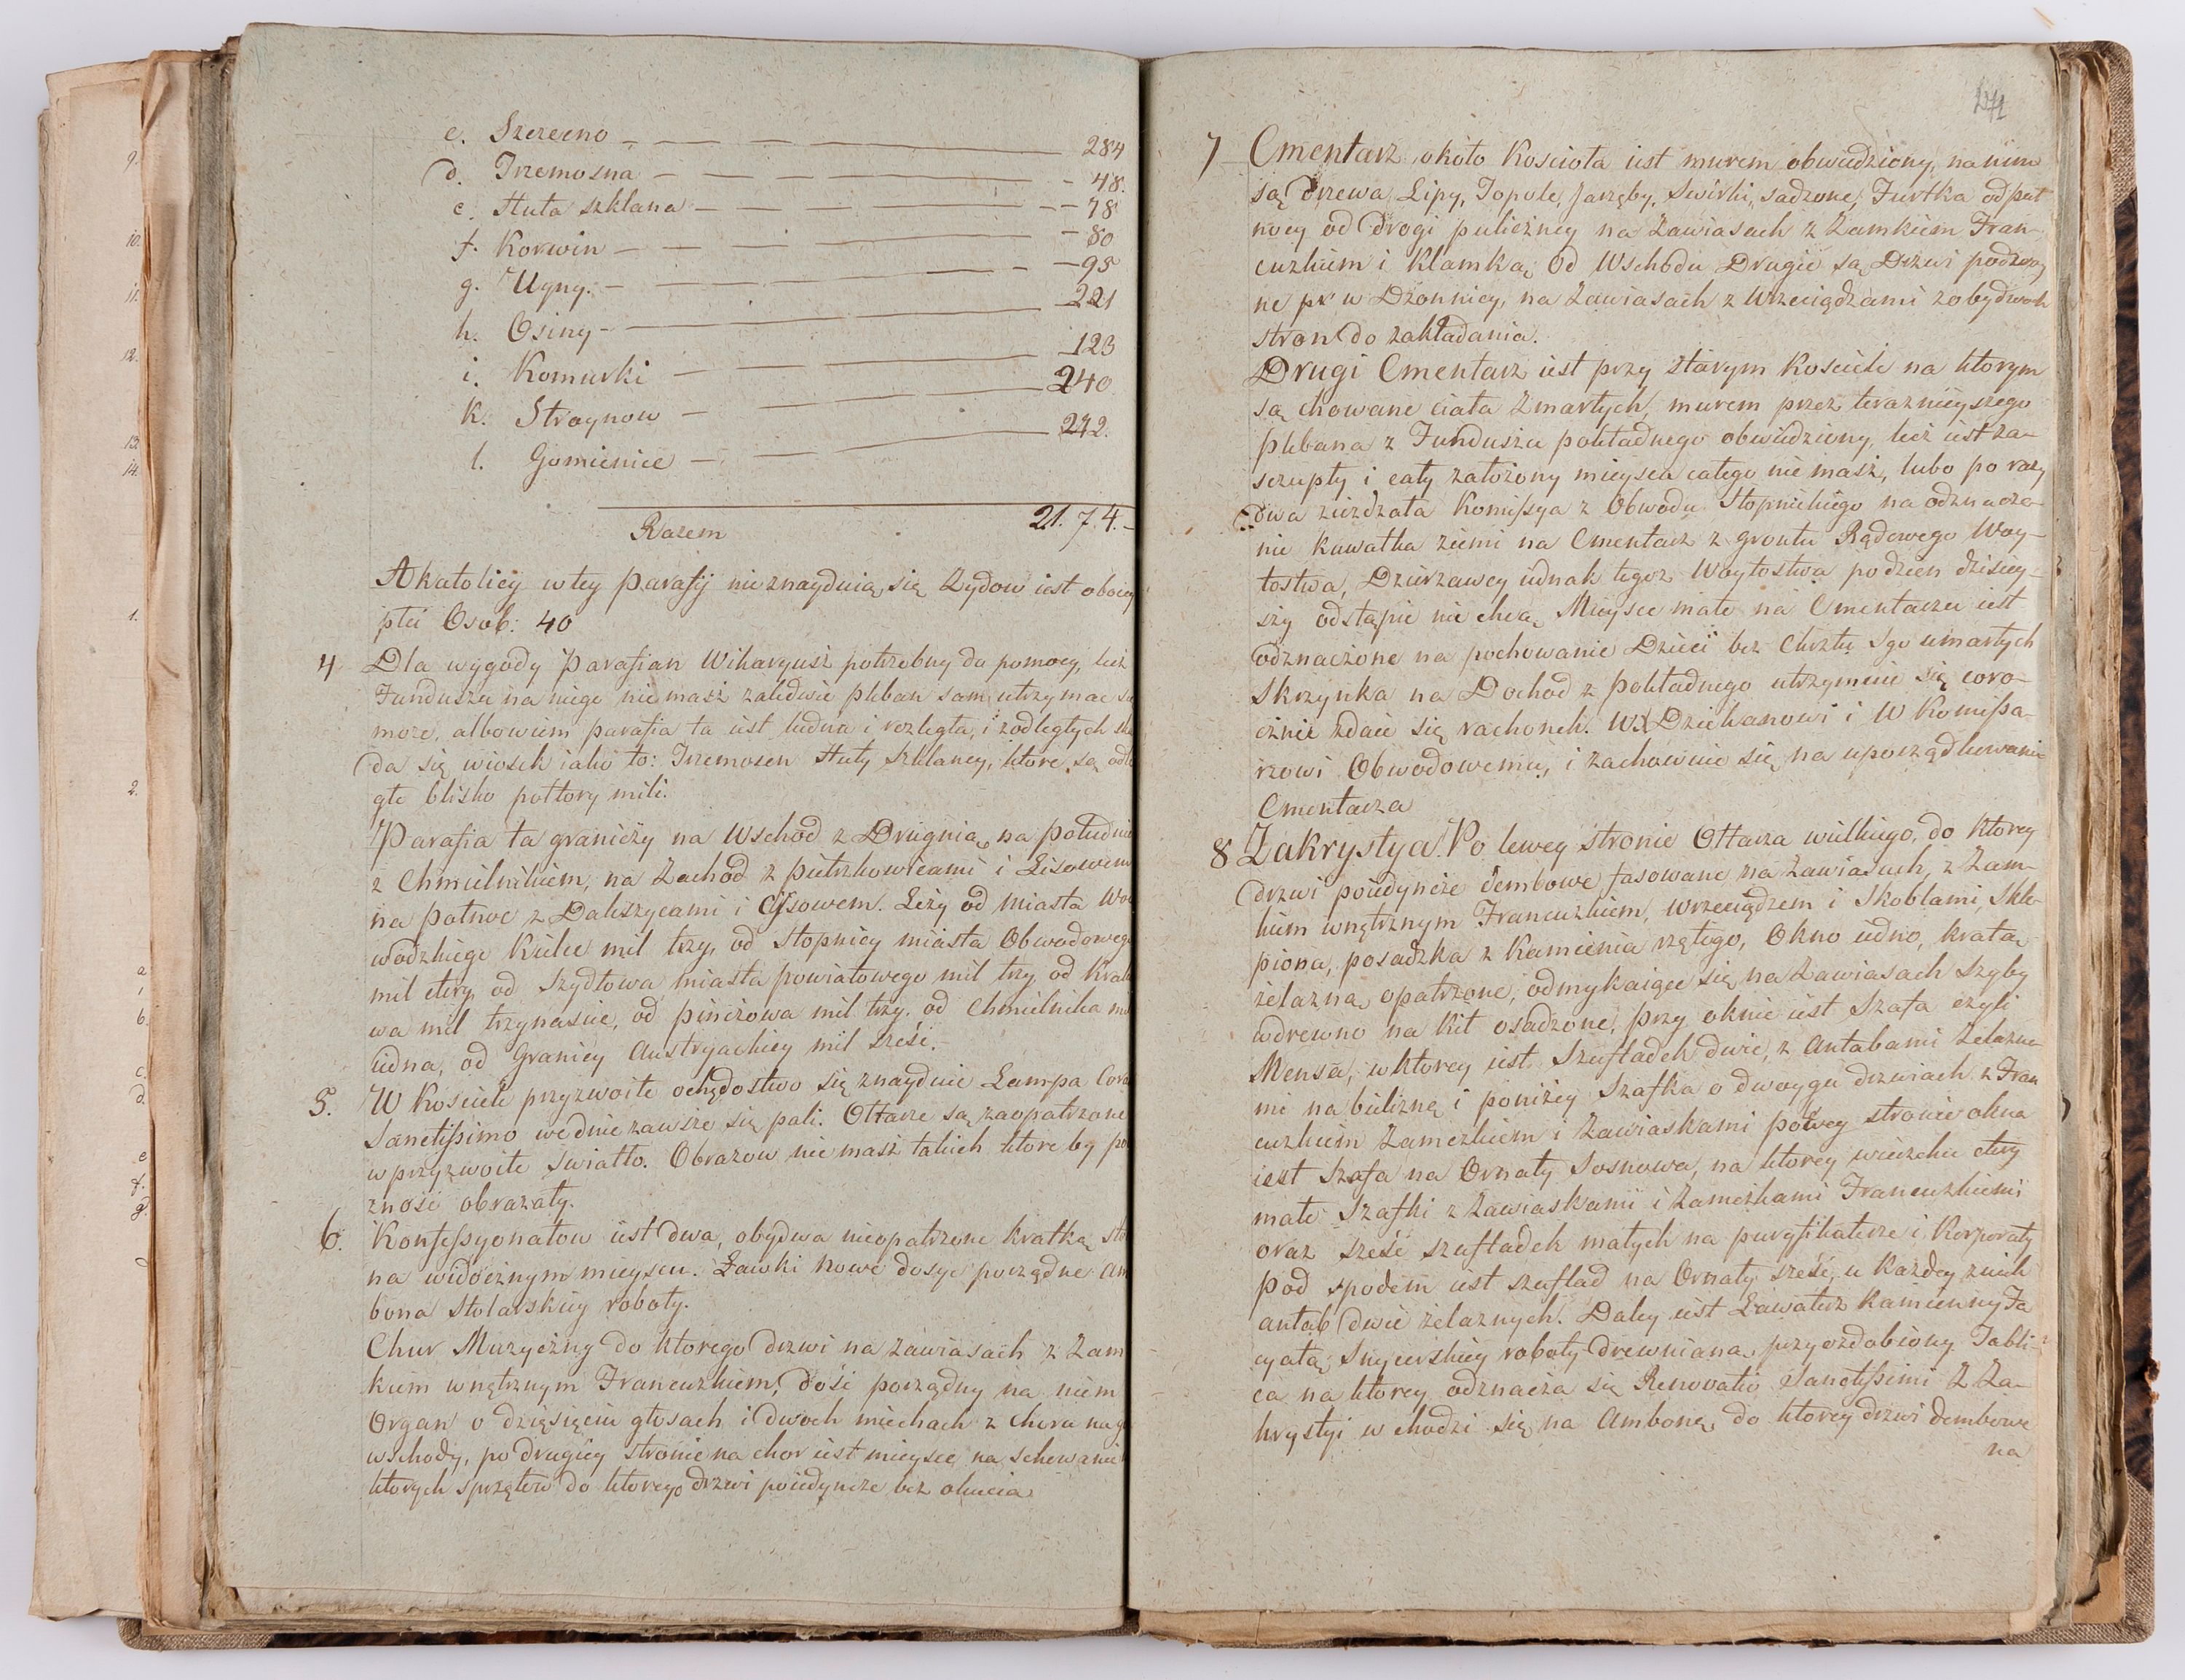 c. Szczecno — 284
d. Trzemosna — 48.
e. Huta szklana — 78
f. Korwin — 80
g. Ugny. — 95
h. Osiny — 221
i. Komurki — 123
k. Stroynow — 240
l. Gomienice — 242.
Razem 21.7.4.-
Akatolicy w tey Parafij nieznayduią się Zydow iest oboiey
płci Osob: 40
4 Dla wygody Parafian Wikaryusz potrzebny do pomocy, lecz
Funduszu na niego nie masz zaledwie pleban sam utrzymac
moze, albowiem parafia ta iest ludna i rozległa, i z odległych
da się wiosek iako to: Trzemosen Huty Szklaney, ktore są odle
głe blisko pułtory mili.
Parafia ta graniczy na Wschod z Drugnią, na południe
z Chmielnikiem, na Zachod z pietrzkowicami i Lisowem
na połnoc z Daleszycami i Cisowem. Leży od Miasta Woe
wodzkiego Kielce mil trzy, od Stopnicy miasta Obwodowego
mil cztery, od Szydłowa miasta powiatowego mil trzy, od Krako
wa mil trzynascie, od pinczowa mil trzy. od Chmielnika
iedna, od Granicy Austryackiey mil sześć.-
5. W Kosciele przyzwoite ochędostwo się znayduie Lampa Cora
Sanctissimo we dnie zawsze się pali. Ołtarze są zaopatrzone
w przyzwoite swiatło. Obrazow nie masz takich ktore by po
zność obrazały.
6. Konfessyonałow iest dwa, obydwa nieopatrzone kratką
na widocznym mieyscu. Ławki nowe dosyc porządne Am
bona Stolarskiey roboty.
Chur Muzyczny do ktorego drzwi na zawiasach z Zam
kiem wnętrznym Francuzkiem, dość porządny na niem
Organ o dzięsięciu głosach i dwoch miechach z Choru na
wschody, po drugiey stronie na chor iest mieysce na schowanie
ktorych sprzętow do ktorego drzwi poiedyncze bez okucia.
7 Cmentarz około Kościoła iest murem obwiedziony, na nim
są drzewa, Lipy, Topole, Jarzęby, Swirki, sadzone, Furtka od puł
nocy od drogi publiczney na Zawiasach z Zamkiem Fran-
cuzkiem i Klamką, Od Wschodu Drugie są Drzwi podwoy
ne w Dzonnicy, na Zawiasach z Wrzeciądzami z obydwoch
stron do zakładania.
Drugi Cmentarz iest przy starym Kosciele na ktorym
są chowane ciała zmarłych, murem przez teraznieyszego
plebana z Funduszu pokładnego obwiedziony, lecz iest za-
szczupły i cały założony mieysca całego nie masz, lubo po razy
dwa ziezdzała Komissya z Obwodu Stopnickiego na odznacze-
nie kawałka ziemi na Cmentarz z gruntu Rządowego Woy-
tostwa, Dzierzawcy iednak tegoz Woytostwa podzien dzisiey-
szy odstąpic nie chcą, Mieysce małe na Cmentarzu iest
odznaczone na pochowanie Dzieci bez Chrztu Sgo umarłych
Skrzynka na Dochod z pokładnego utrzymuie się coro-
cznie zdaie się rachonek. WX Dziekanowi i W Komissa-
rzowi Obwodowemu, i zachowuie się na uporządkowanie
Cmentarza
8 Zakrystya. Po lewey stronie Ołtarza wielkiego, do ktorey
drzwi poiedyncze dembowe fasowane na Zawiasach, z Zam-
kiem wnętrznym Francuzkiem, wrzeciądzem i Skoblami, Skle-
piona, posadzka z Kamienia rzętego, Okno iedno, kratą
żelazną opatrzone, odmykaigce się na Zawiasach Szyby
w drewno na kit osadzone, przy oknie iest Szafa czyli
Mensa, w ktorey iest Szufladek dwie, z Antabami żelazne
mi na bieliznę i poniżey Szafka o dwoygu drzwiach z Fran
cuzkiem Zameczkiem i Zawiaskami po lewey stronie okna
iest Szafa na Ornaty Sosnowa, na ktorey wierzchu cztery
małe Szafki z Zawiaskami i Zameczkami Francuzkiemi
oraz sześć szufladek małych na puryfikaterze i Korporały
pod spodem iest szuflad na Ornaty sześć, u każdey z nich
antab dwie żelaznych. Daley iest Lawaterz Kamienny Fa
cyatą Snycerskiey roboty drewnianą przyozdobiony Tabli-
ca na ktorey odznacza się Renovatio Sanctissimi Z Za-
krystyi w chodzi się na Ambonę, do ktorey drzwi dembowe
na